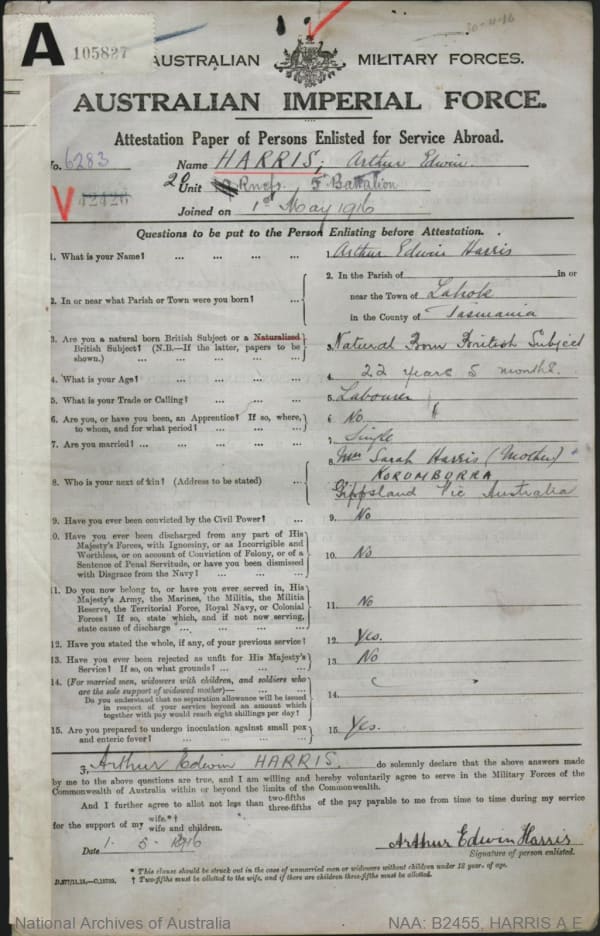 A
105827
20-4-16
AUSTRALIAN MILITARY FORCES.
AUSTRALIAN IMPERIAL FORCE.
Attestation Paper of Persons Enlisted for Service Abroad.
No. 6283 Name HARRIS, Arthur Edwin.
V 42426 20 Unit Rnfs. 5 Battalion
Joined on 1st May 1916
Questions to be put to the Person Enlisting before Attestation.
1. What is your Name? ... ... ... ... 1. Arthur Edwin Harris
2. In or near what Parish or Town were you born? ... 2. In the Parish of in or
near the Town of
in the County of Tasmania
3. Are you a natural born British Subject or a Naturalized
British Subject? (N.B.—If the latter, papers to be
shown.) ... ... ... ... 3. Natural Born British Subject
4. What is your Age? ... ... ... ... 4. 22 years 5 months.
5. What is your Trade or Calling? ... ... ... 5. Labourer
6. Are you, or have you been, an Apprentice? If so, where,
to whom, and for what period? ... ... ... 6. No.
7. Are you married? ... ... ... ... 7. Single
8. Who is your next of kin? (Address to be stated) ... 8. Mrs Sarah Harris (Mother)
KORUMBURRA
Gippsland Vic Australia
9. Have you ever been convicted by the Civil Power? ... 9. No
0. Have you ever been discharged from any part of His
Majesty's Forces, with Ignominy, or as Incorrigible and
Worthless, or on account of Conviction of Felony, or of a
Sentence of Penal Servitude, or have you been dismissed
with Disgrace from the Navy? ... ... ... 10. No
1. Do you now belong to, or have you ever served in, His
Majesty's Army, the Marines, the Militia, the Militia
Reserve, the Territorial Force, Royal Navy, or Colonial
Forces? If so, state which, and if not now serving,
state cause of discharge ... ... ... 11. No
12. Have you stated the whole, if any, of your previous service? 12. Yes.
13. Have you ever been rejected as unfit for His Majesty's
Service? If so, on what grounds? ... ... ... 13. No
14. (For married men, widowers with children, and soldiers who
are the sole support of widowed mother)— ... ...
Do you understand that no separation allowance will be issued
in respect of your service beyond an amount which
together with pay would reach eight shillings per day? 14.
15. Are you prepared to undergo inoculation against small pox
and enteric fever? ... ... ... ... 15. Yes.
I, Arthur Edwin HARRIS. do solemnly declare that the above answers made
by me to the above questions are true, and I am willing and hereby voluntarily agree to serve in the Military Forces of the
Commonwealth of Australia within or beyond the limits of the Commonwealth.
And I further agree to allot not less than two-fifths three-fifths of the pay payable to me from time to time during my service
for the support of my wife.*† wife and children.
Date 1. 5. 1916 Arthur Edwin Harris
Signature of person enlisted.
* This clause should be struck out in the case of unmarried men or widowers without children under 18 years of age.
† Two-fifths must be allotted to the wife, and if there are children three-fifths must be allotted.
National Archives of Australia NAA: B2455, HARRIS A E